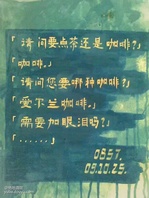 「请问要点茶还是咖啡?」
「咖啡。」
「请问您要哪种咖啡?」
「爱尔兰咖啡。」
「需要加眼泪吗?」
「……」
0857.
09.10.25.